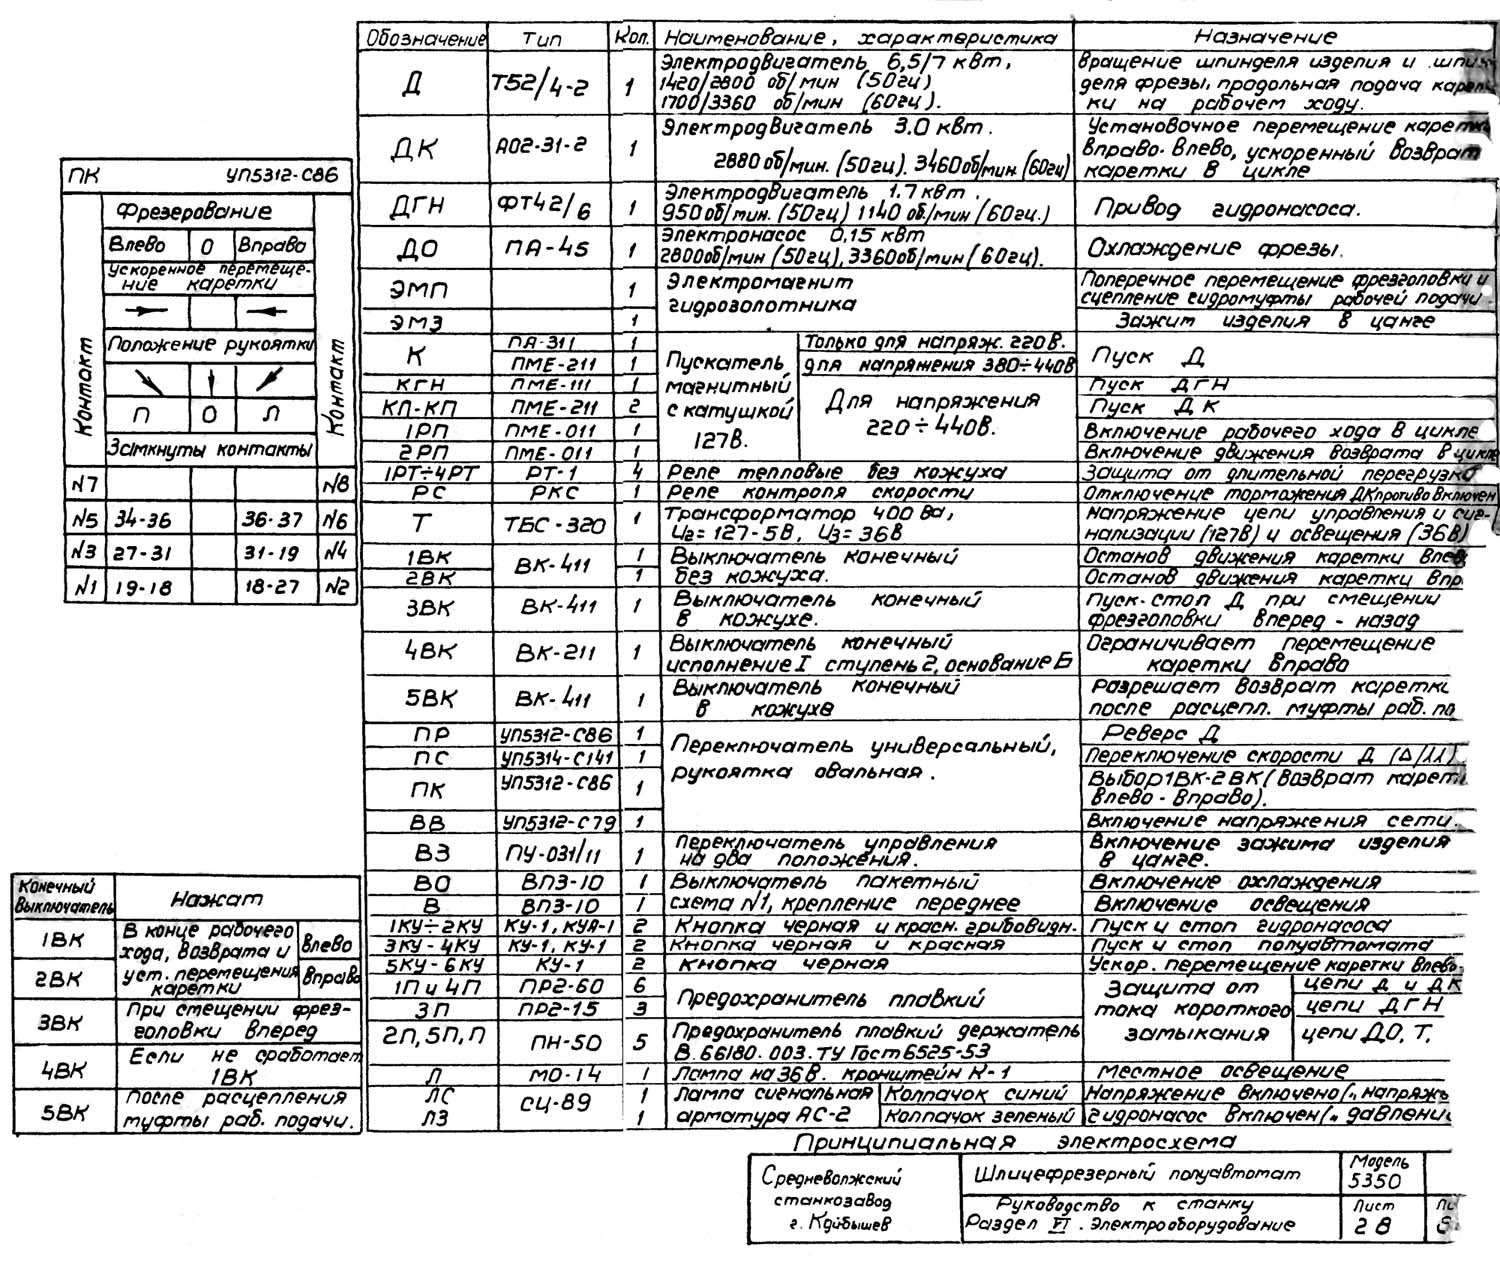 Обозначение Тип Кол. Наименование, характеристика Назначение
Д Т52/4-2 1 Электродвигатель 6,5/7 квт, Вращение шпинделя изделия и
1420/2800 об/мин (50гц) деля фрезы, продольная подача
1700/3360 об/мин (60гц). ки на рабочем ходу.
ДК АО2-31-2 1 Электродвигатель 3.0 квт. Установочное перемещение
2880 об/мин. (50гц). 3460 об/мин. (60гц) вправо-влево, ускоренный возврат
каретки в цикле
ДГН ФТ42/6 1 Электродвигатель 1.7 квт. Привод гидронасоса.
950 об/мин. (50гц) 1140 об./мин (60гц.)
ДО ПА-45 1 Электронасос 0,15 квт Охлаждение фрезы.
2800об/мин (50гц), 3360об/мин (60гц).
ЭМП 1 Электромагнит Поперечное перемещение фрезголовки и
гидрозолотника сцепление гидромуфты рабочей подачи
ЭМЗ 1 Зажит изделия в цанге
К ПА-311 1 Пускатель Только для напряж. 220в. Пуск Д
ПМЕ-211 1 для напряжения 380÷440в
КГН ПМЕ-111 1 магнитный Для напряжения Пуск ДГН
КЛ-КП ПМЕ-211 2 с катушкой 220÷440в. Пуск ДК
1РП ПМЕ-011 1 127в. Включение рабочего хода в цикле
2РП ПМЕ-011 1 Включение движения возврата в цикле
1РТ÷4РТ РТ-1 4 Реле тепловые без кожуха Защита от длительной перегрузка
РС РКС 1 Реле контроля скорости Отключение торможения ДК противовключен
Т ТБС-320 1 Трансформатор 400 ва, Напряжение цепи управления и сиг-
U2=127-5В, U3=36В нализации (127В) и освещения (36В)
1ВК ВК-411 1 Выключатель конечный Останов движения каретки
2ВК 1 без кожуха. Останов движения каретки
3ВК ВК-411 1 Выключатель конечный Пуск-стоп Д при смещении
в кожухе. фрезголовки вперед-назад
4ВК ВК-211 1 Выключатель конечный Ограничивает перемещение
исполнение I ступень 2, основание Б каретки вправо
5ВК ВК-411 1 Выключатель конечный Разрешает возврат
в кожухе после расцепл. муфты раб.
ПР УП5312-С86 1 Переключатель универсальный, Реверс Д
ПС УП5314-С141 1 рукоятка овальная. Переключение скорости Д (Δ/λλ)
ПК УП5312-С86 1 Выбор 1ВК-2ВК (возврат
влево-вправо).
ВВ УП5312-С79 1 Включение напряжения сети.
ВЗ ПУ-031/11 1 Переключатель управления Включение зажима изделия
на два положения. в цанге.
ВО ВПЗ-10 1 Выключатель пакетный Включение охлаждения
В ВПЗ-10 1 схема №1, крепление переднее Включение освещения
1КУ÷2КУ КУ-1, КУА-1 2 Кнопка черная и красн. грибовидн. Пуск и стоп гидронасоса
3КУ-4КУ КУ-1, КУ-1 2 Кнопка черная и красная Пуск и стоп полуавтомата
5КУ-6КУ КУ-1 2 Кнопка черная Ускор. перемещение каретки влево
1П и 4П ПР2-60 6 Предохранитель плавкий Защита от цепи Д и ДК
3П ПР2-15 3 тока короткого цепи ДГН
2П, 5П, П ПН-50 5 Предохранитель плавкий держатель замыкания цепи ДО, Т,
В.66180.003.ТУ Гост 6525-53
Л МО-14 1 Лампа на 36в. кронштейн К-1 Местное освещение
ЛС СЦ-89 1 Лампа сигнальная Колпачок синий Напряжение включено
ЛЗ 1 арматура АС-2 Колпачок зеленый гидронасос включен
ПК УП5312-С86
Контакт
Контакт
Фрезерование
Влево 0 Вправо
Ускоренное перемеще-
ние каретки
Положение рукоятки
П 0 Л
Замкнуты контакты
№7 №8
№5 34-36 36-37 №6
№3 27-31 31-19 №4
№1 19-18 18-27 №2
Конечный Нажат
Выключатель
1ВК В конце рабочего Влево
хода, возврата и
2ВК уст. перемещения Вправо
каретки
3ВК При смещении фрез-
головки вперед
4ВК Если не сработает
1ВК
5ВК После расцепления
муфты раб. подачи.
Принципиальная электросхема
Средневолжский
станкозавод
г. Куйбышев
Шлицефрезерный полуавтомат Модель
5350
Руководство к станку Лист
Раздел VI. Электрооборудование 28